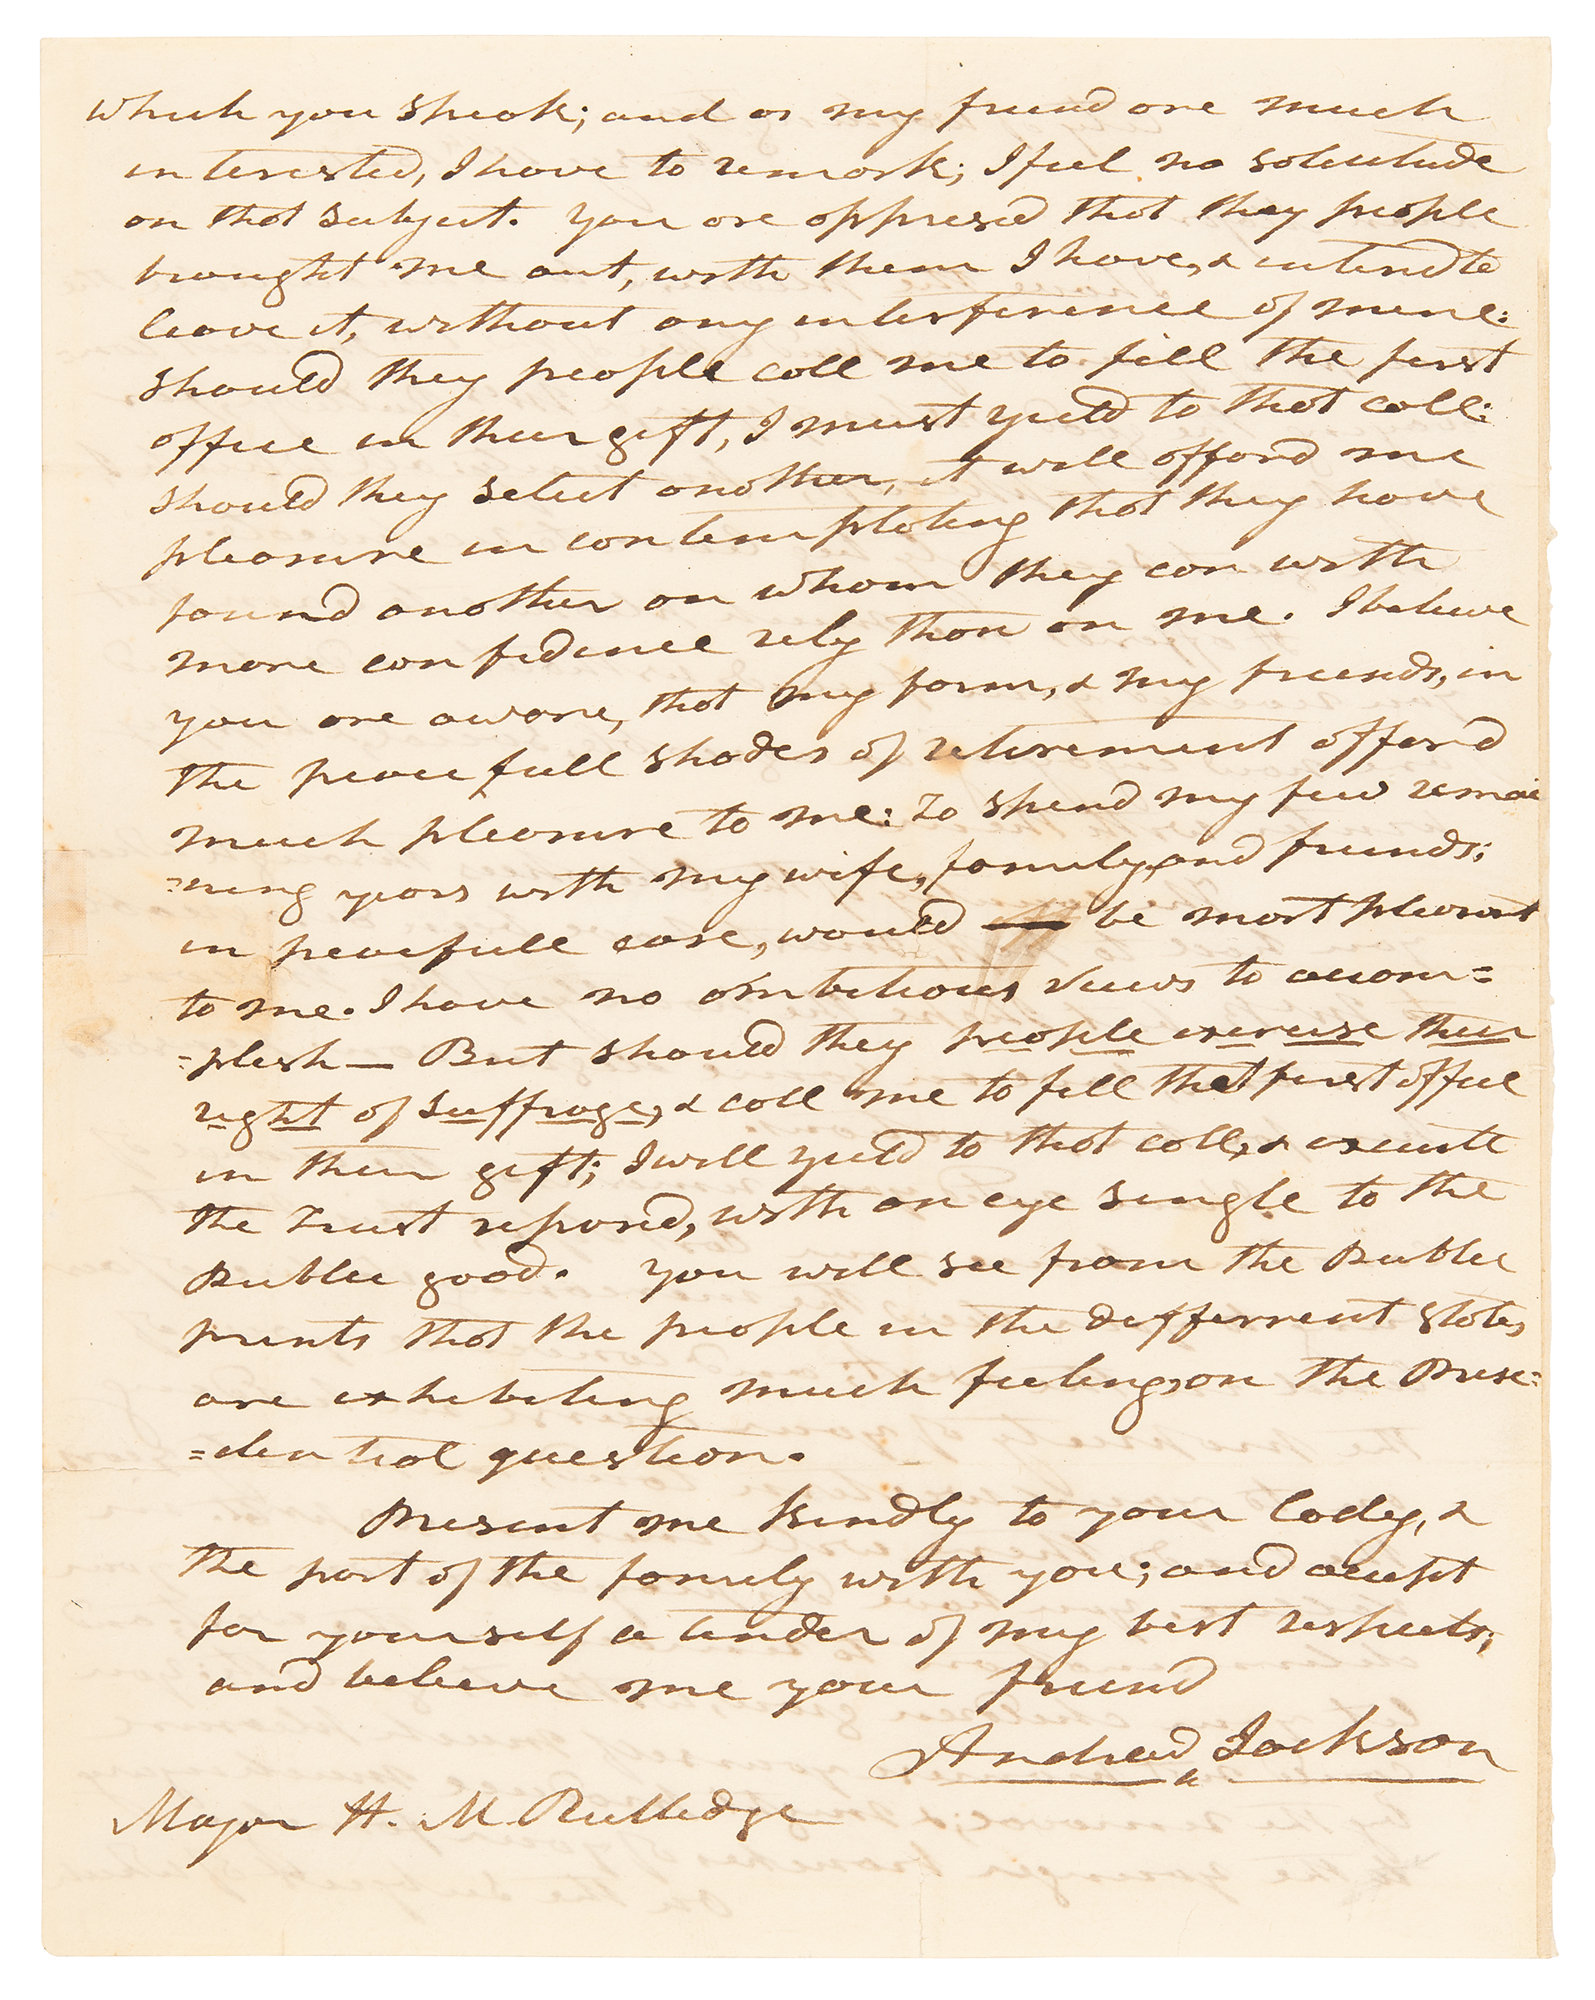 which you speak; and as my friend are much
interested, I have to remark; I feel no solicitude
on that subject. You are apprised that they people
brought me out, with them I have, & intend to
leave it, without any interference of mine:
should they people call me to fill the first
office in their gift, I must yield to that call:
should they select another, it will afford me
pleasure in contemplating that they have
found another on whom they can with
more confidence rely than on me. I believe
you are aware, that my farm, & my friends, in
the peacefull shades of retirement afford
much pleasure to me: To spend my few remai
=ning years with my wife, family, and friends;
in peacefull ease, would be most pleasant
to me. I have no ambitious views to accom=
=plish — But should they people exercise their
right of suffrage, & call me to fill that first office
in their gift; I will yield to that call, & execute
the trust reposed, with an eye single to the
Public good. You will see from the Public
prints that the people in the different states,
are exhibiting much feeling, on the Presi=
=dential question.
Present me kindly to your lady, &
the part of the family with you; and accept
for yourself a tender of my best respects;
and believe me your friend
Andrew Jackson
Major H. M. Rutledge